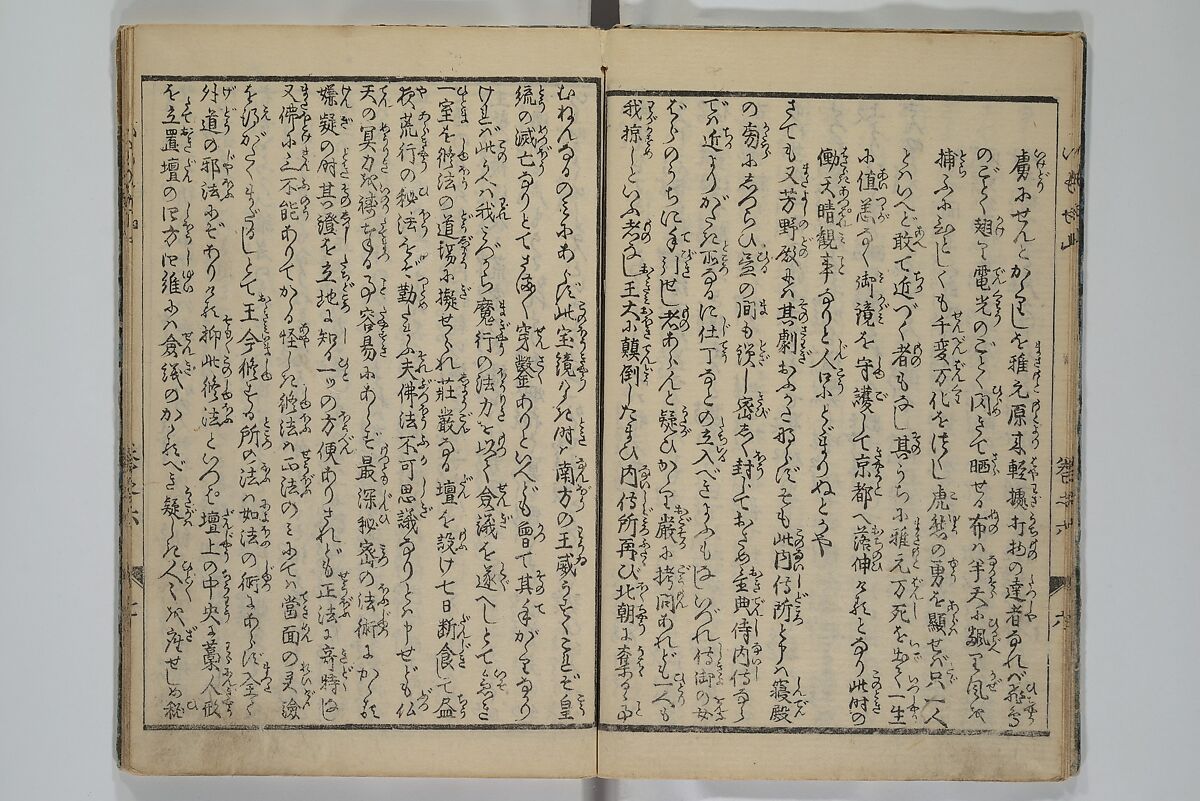 虜にせんとかゝりしを雅元原来軽擾打物の達者なれバ飛鳥
のごとく翔り電光のごとく閃きて晒せる布ハ半天に飄り風を
捕ふにひとしくも千変万化をつくし虎㷀の勇を顕せば只一人
とハいへど敢て近づく者もなし其うちに雅元万死を出て一生
に値恙なく御鏡を守護して京都へ落伸けるとなり此時の
働天晴観事なりと人口にとゞまりぬとかや
さても又芳野殿にハ其劇おふかたならずそも此内侍所と申ハ寝殿
の旁にしつらひ昼の間も鎖し密しく封じておさめ主典侍内侍なら
でハ近よりがたき所なるに仕丁なとの立入べきよふもなしいづれ侍御の女
ばらのうちに手引せし者あらんと疑ひかゝり厳に拷問あれども一人も
我掠しといふ者なし王大に顛倒したまひ内侍所再び北朝に奪るゝ事
むねんなるのミにあらず此宝鏡なき時ハ南方の王威かろく是ぞ皇
統の滅亡なりとてさま〴〵穿鑿ありといへども曽て其手がゝりなかり
けれバ此うへハ我みづから魔行の法力を以て僉議を遂べしとて
一室を修法の道場に擬せられ荘厳なる壇を設け七日断食して昼
夜荒行の秘法をぞ勤たまふ夫佛法不可思議なりとハ申せども仏
天の冥力を祷奉る事容易にあらず最深秘密の法術にかゝらず
嫌疑の時其證を立地に知る一ツの方便ありされども正法に奇特なし
又佛に三不能ありてかゝる怪しき修法ハ正法のミにてハ當面の灵験
を得がたくまゝだしとて王今修する所の法ハ如法の術にあらず全く
外道の邪法にぞありける抑此修法といつぱ壇上の中央に藁人形
を立置壇の四方四維にハ僉紙のかゝるべき疑しき人〴〵を座せしめ秘